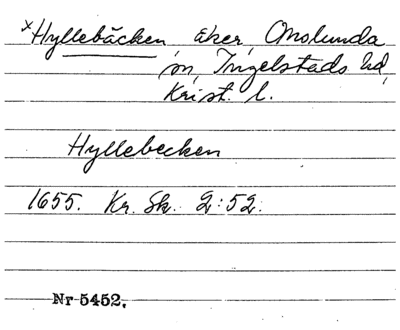 ×Hyllebäcken, åker, Onslunda
sn, Ingelstads hd,
Krist. l.
Hyllebecken
1655. Kr. Sk. 2:52.
Nr 5452,